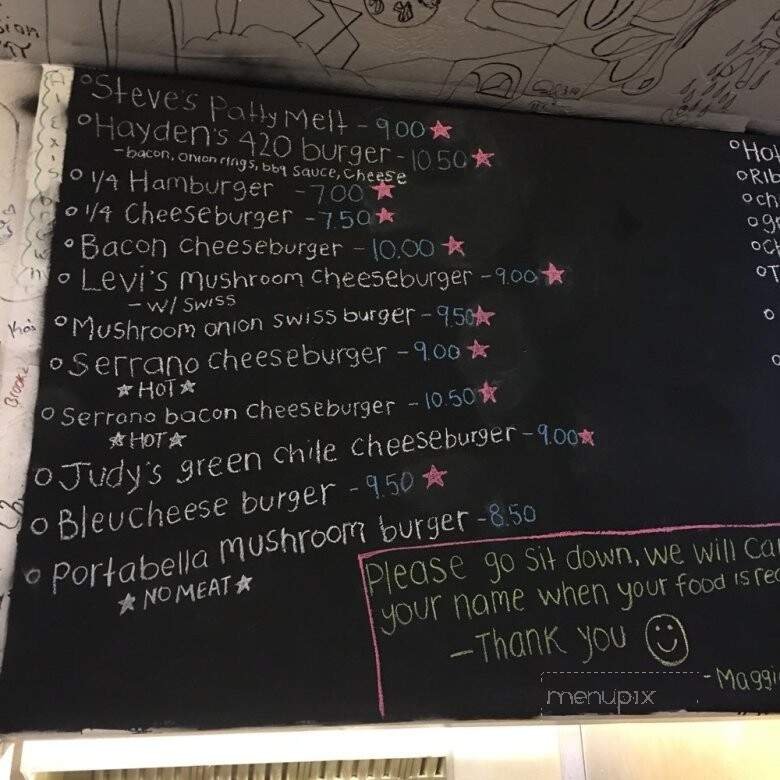 °Steve's Patty Melt - 9.00★
°Hayden's 420 burger - 10.50★
-bacon, onion rings, bbq sauce, cheese
° 1/4 Hamburger - 7.00 ★
° 1/4 Cheeseburger - 7.50★
° Bacon cheeseburger - 10.00 ★
° Levi's mushroom cheeseburger - 9.00★
- w/ swiss
° Mushroom onion swiss burger - 9.50★
° Serrano cheeseburger - 9.00 ★
★ HOT ★
° Serrano bacon cheeseburger - 10.50★
★ HOT ★
° Judy's green chile cheeseburger - 9.00★
° Bleucheese burger - 9.50 ★
° Portabella mushroom burger - 8.50
★ NO MEAT ★
Please go sit down, we will
your name when your food is
- Thank you ☺
menupix